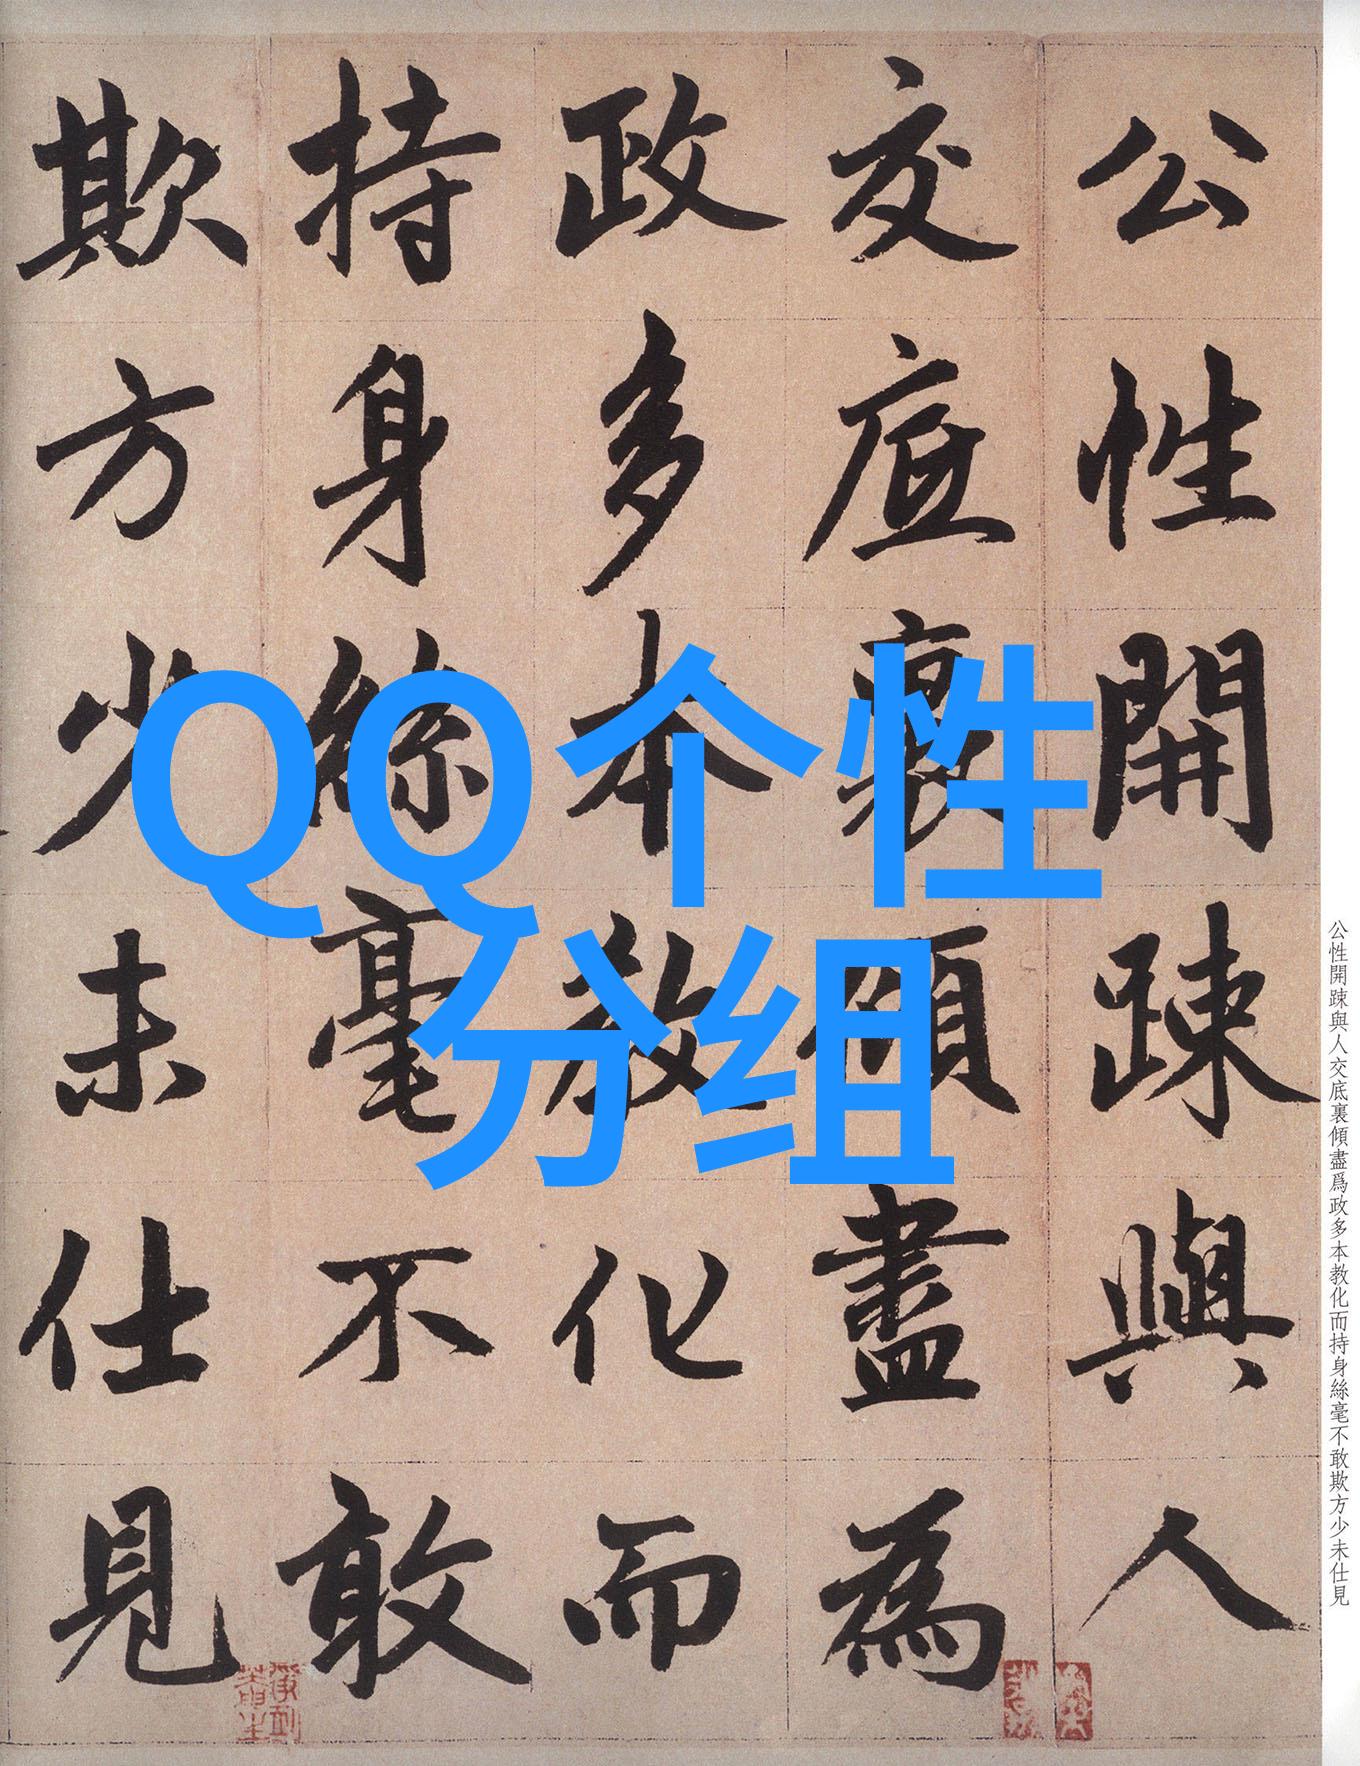 公性開踈與人
交底裏傾盡為
政多本教化而
持身絲毫不敢
欺方少未仕見
QQ个性
分组
公性開踈與人交底裏傾盡爲政多本教化而持身絲毫不敢欺方少未仕見